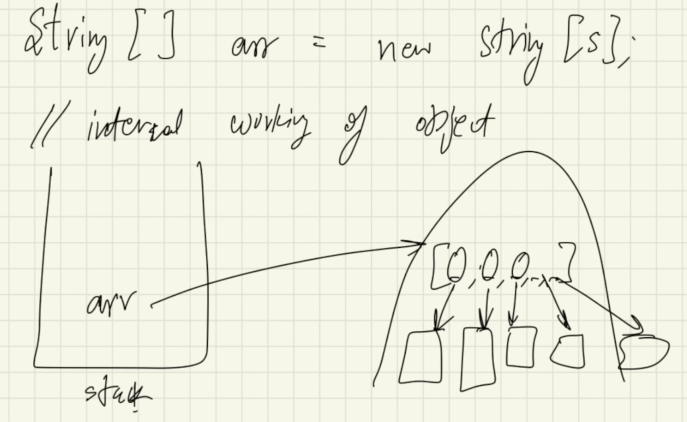 String [ ] arr = new String [5];
// internal working of object
[0,0,0,..]
arr
stack